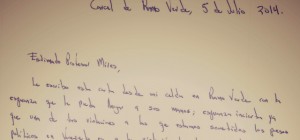 Carcel de Ramo Verde, 5 de Julio 2014.
Estimado Profesor Mires,
Le escribo esta carta desde mi celda en Ramo Verde con la
esperanza que le pueda llegar a sus manos; esperanza incierta ya
que una de las violaciones a las que estamos sometidos los presos
políticos en Venezuela es a la